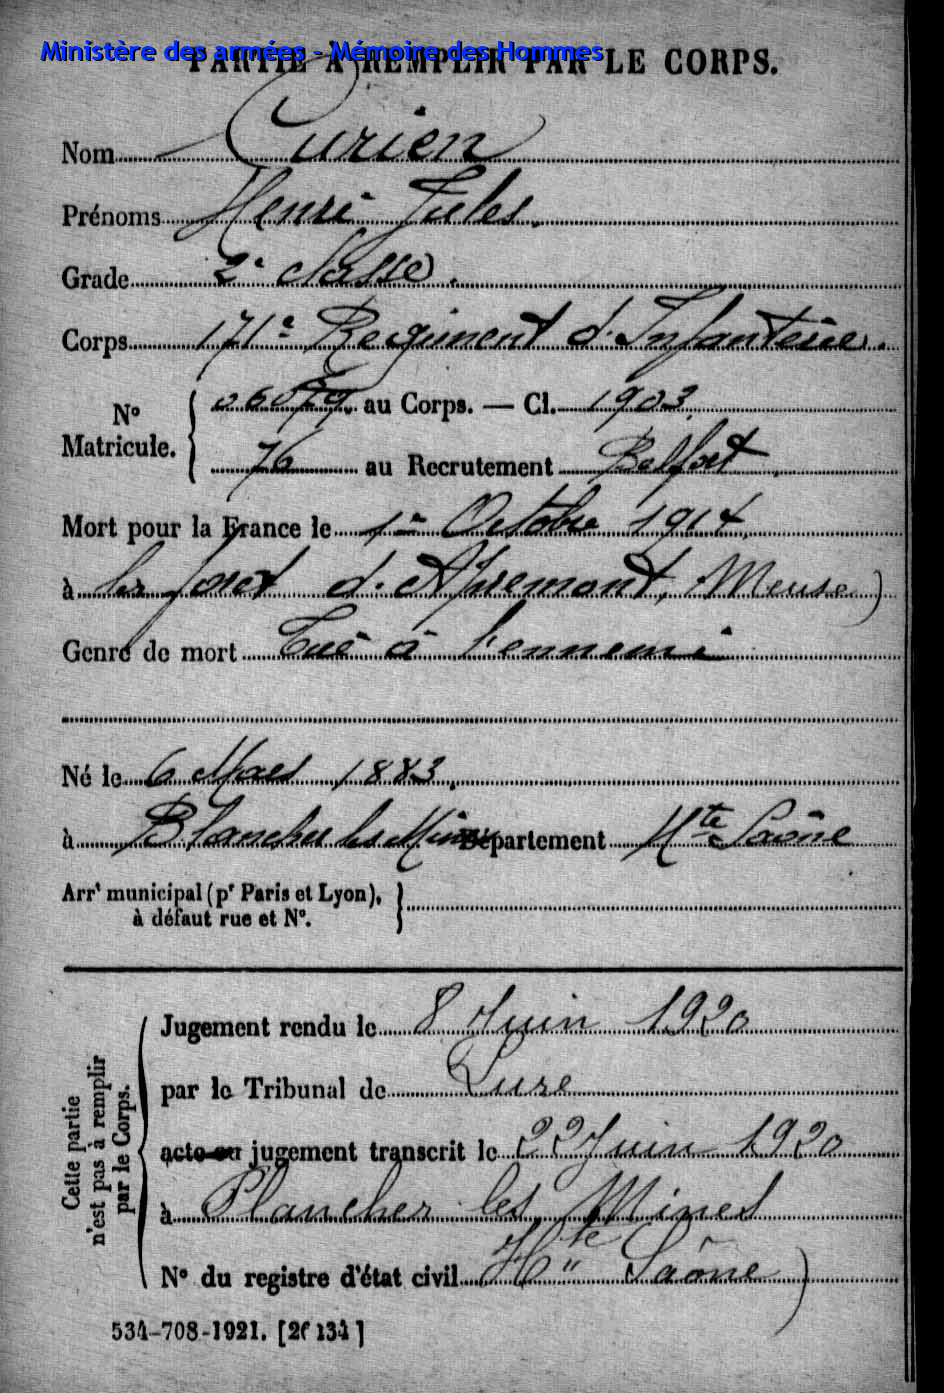 Ministère des armées - Mémoire des Hommes
PARTIE À REMPLIR PAR LE CORPS.
Nom Curien
Prénoms Henri Jules.
Grade 2e classe.
Corps 171e Regiment d'Infanterie.
No Matricule. 06079. au Corps. — Cl. 1903.
76 au Recrutement Belfort.
Mort pour la France le 1er Octobre 1914,
à la forêt d'Apremont, Meuse)
Genre de mort Tué à l'ennemi
Né le 6 Mars 1883.
à Plancher les Mines Département Hte Saône
Arrt municipal (pr Paris et Lyon),
à défaut rue et No.
Cette partie
n'est pas à remplir
par le Corps.
Jugement rendu le 8 Juin 1920
par le Tribunal de Lure
acte ou jugement transcrit le 22 Juin 1920
à Plancher les Mines
No du registre d'état civil Hte Saône)
534-708-1921. [26134]